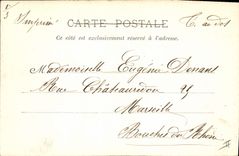 Imprimé
CARTE POSTALE
Ce côté est exclusivement réservé à l'adresse.
Mademoiselle Eugénie Donant
Rue Châteauredon 25
Marseille
Bouches du Rhône